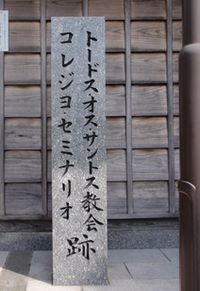 トードス・オス・サントス教会
コレジヨ・セミナリオ
跡